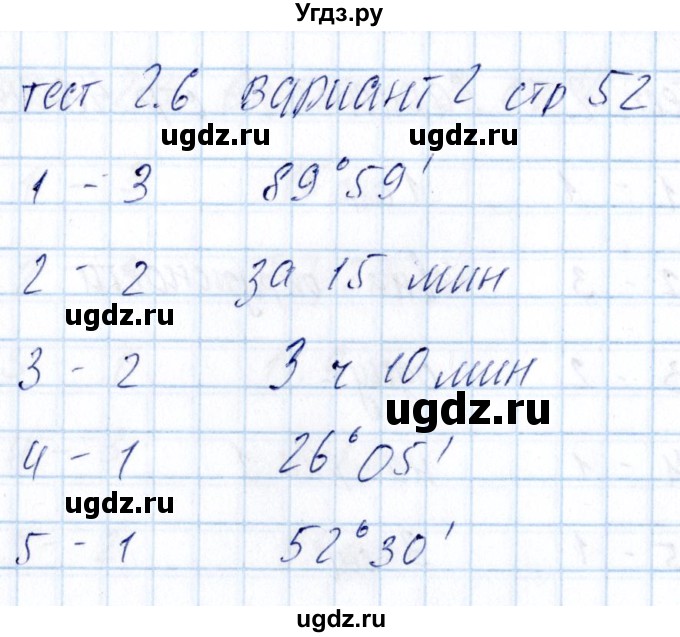 Угдз.ру
тест 2.6 вариант 2 стр 52
ugdz.ru ugdz.ru
1 - 3 89°59'
2 - 2 за 15 мин
ugdz.ru
3 - 2 3 ч 10 мин
ugdz.ru
4 - 1 26°05'
ugdz.ru
5 - 1 52°30'
ugdz.ru